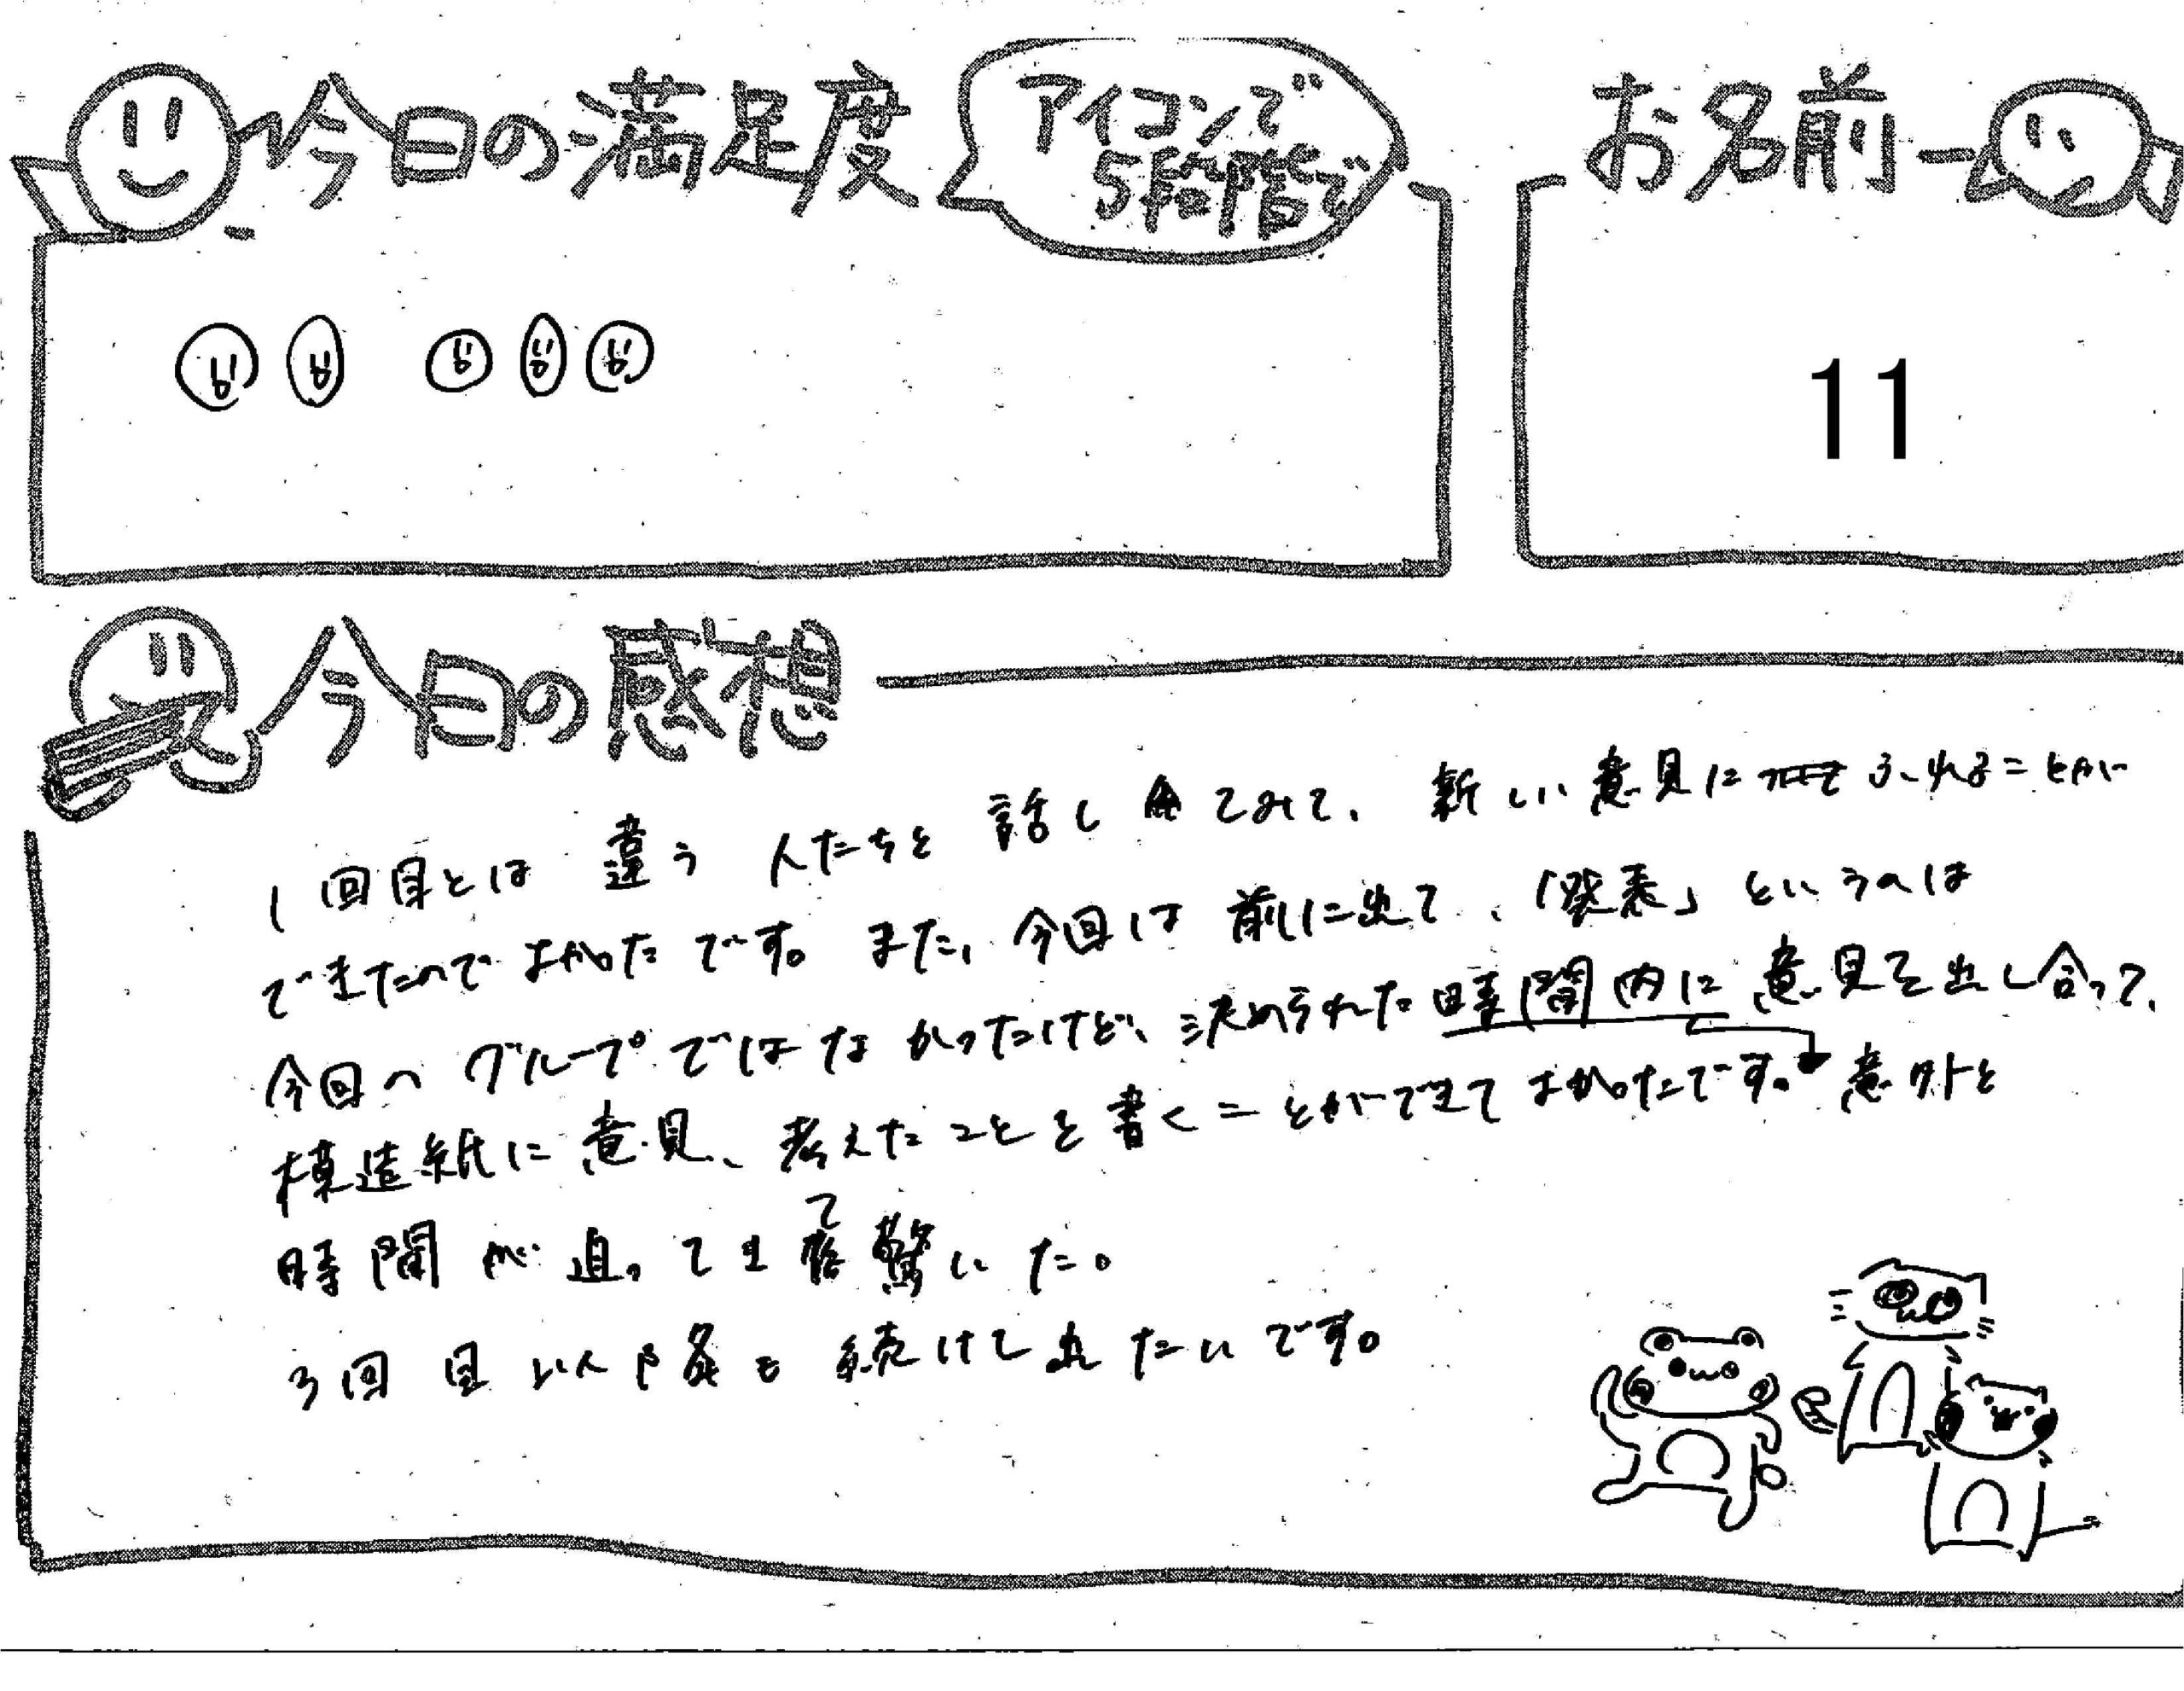 今日の満足度
アイコンで
5段階で
お名前
11
今日の感想
1回目とは違う人たちと話し合てみて、新しい意見にふれることが
できたのでよかったです。また、今回は前に出て、「発表」というのは
今回のグループではなかったけど、決められた時間内に意見を出し合って、
模造紙に意見、考えたことを書くことができてよかったです。意外と
時間が迫ってきて驚いた。
3回目以降も続けて出たいです。